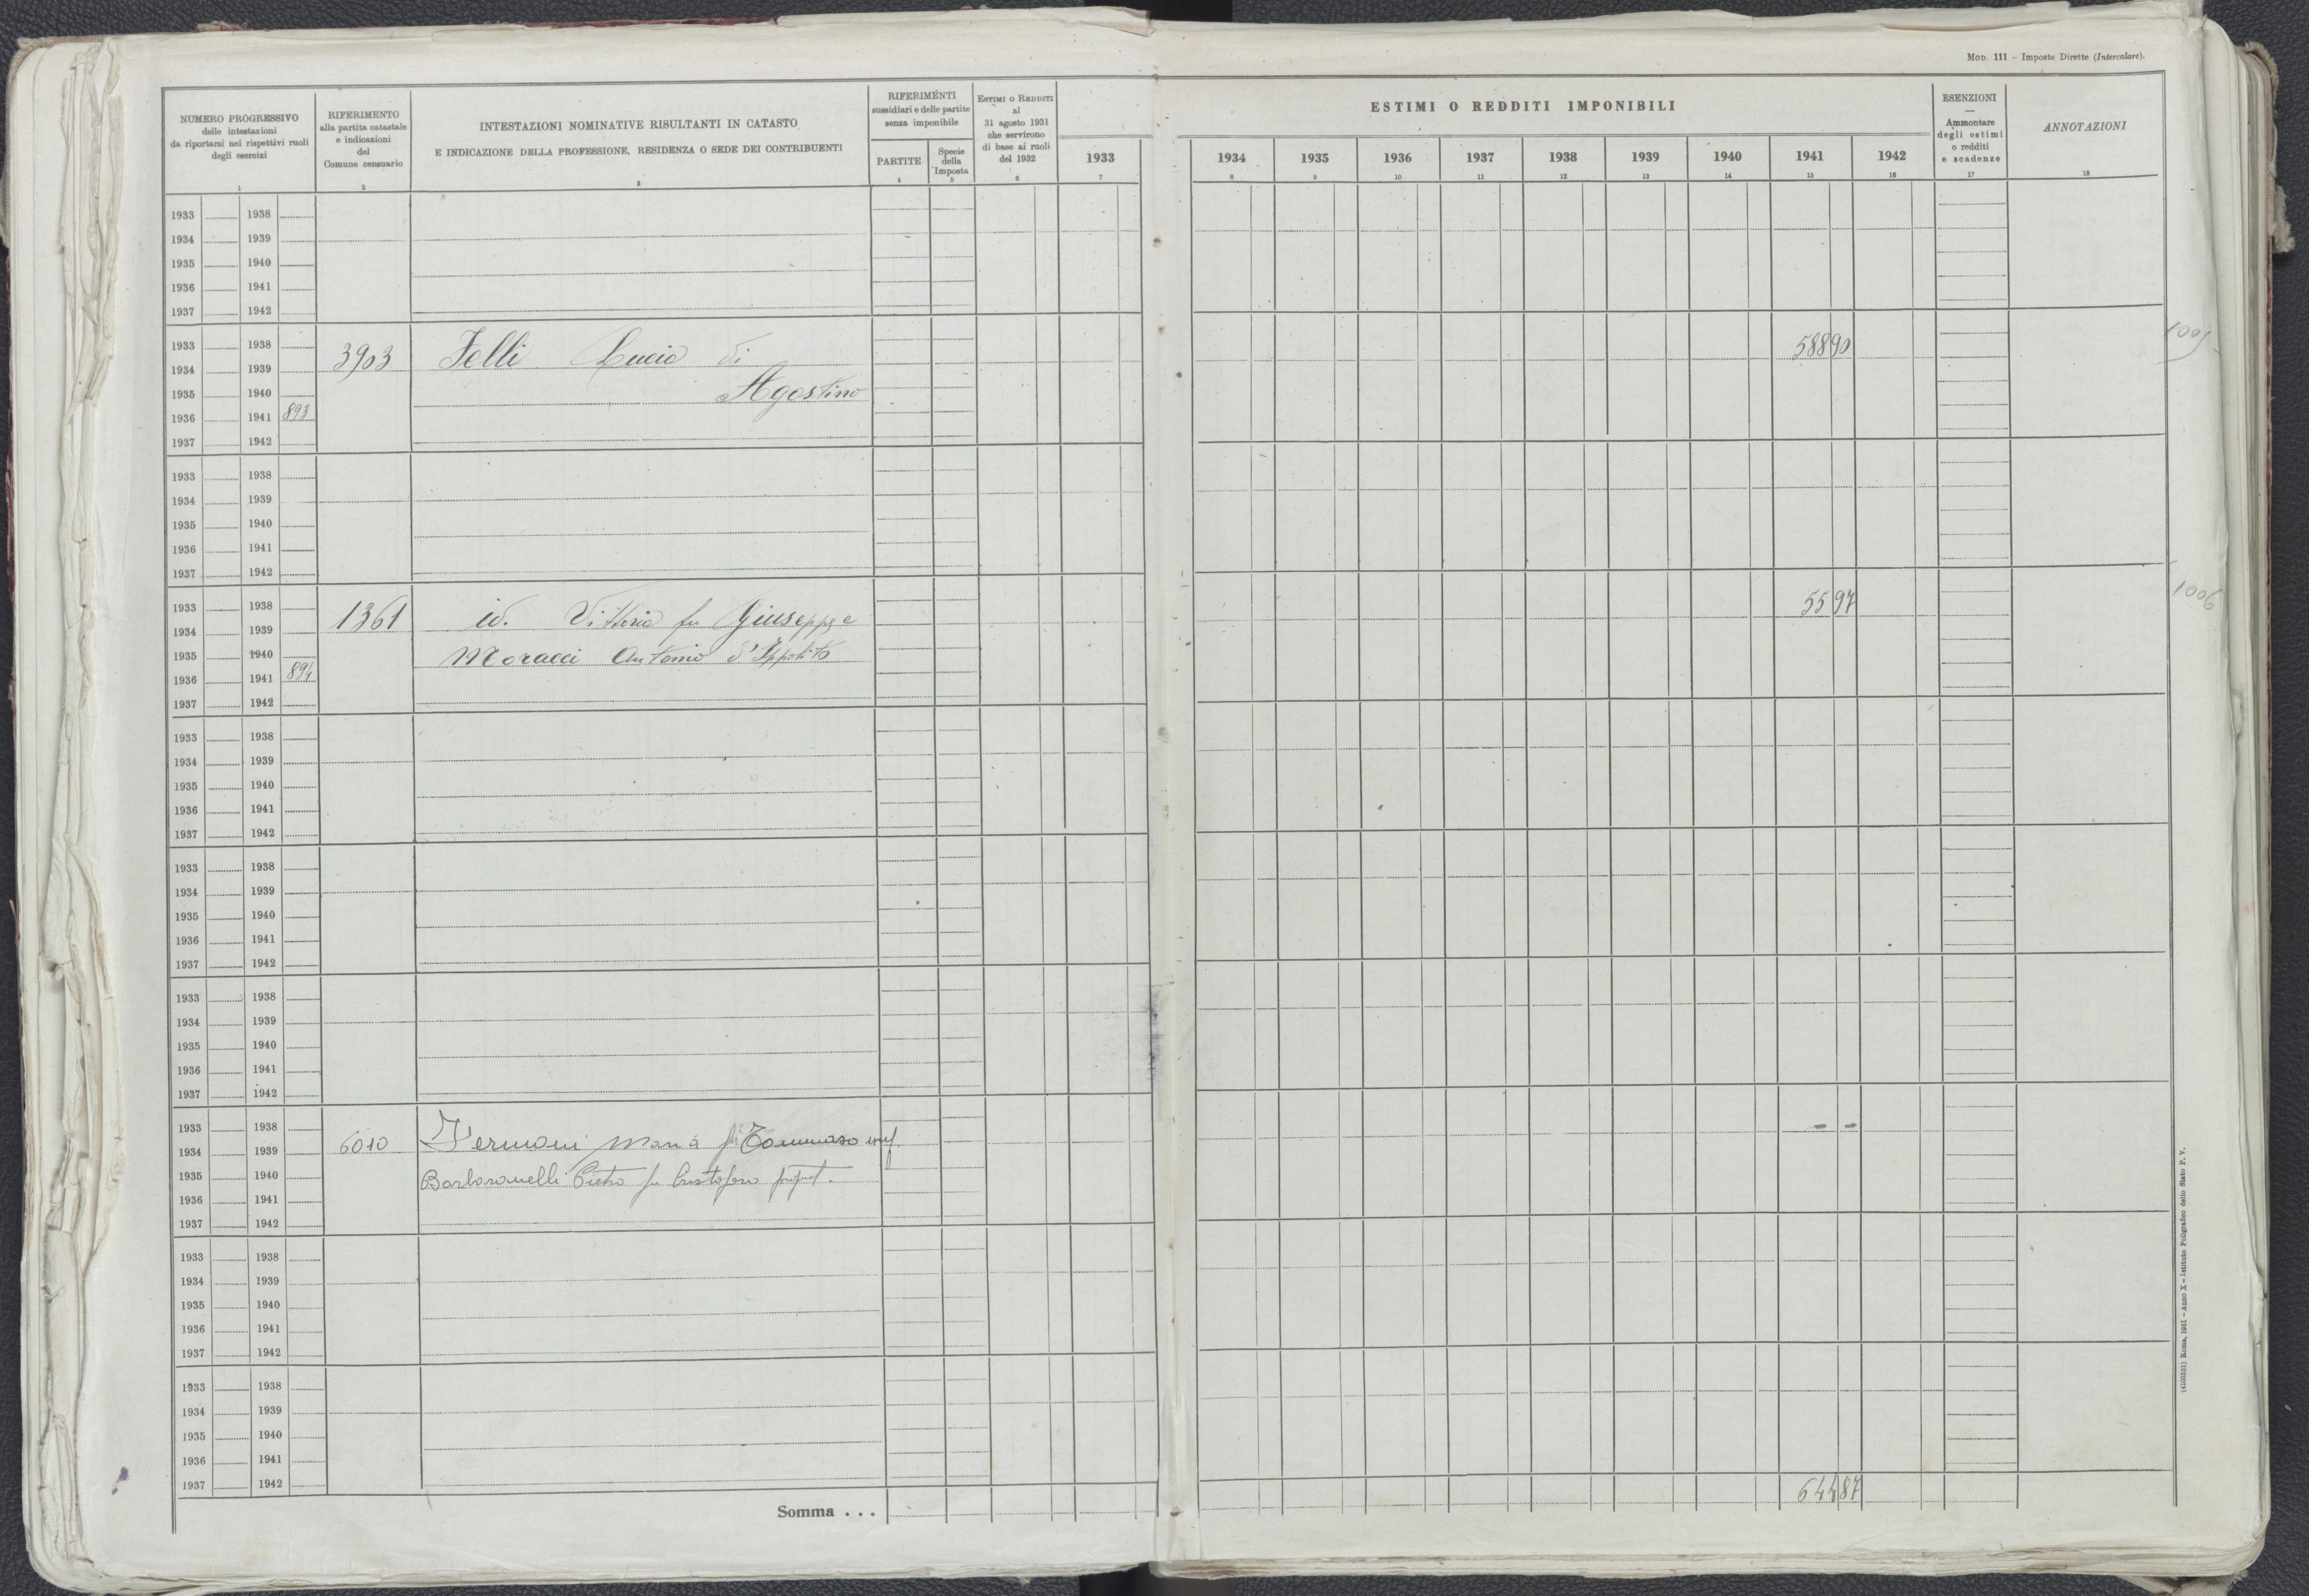 MOD. 111 – Imposte Dirette (Intercalare).
NUMERO PROGRESSIVO
delle intestazioni
da riportarsi nei rispettivi ruoli
degli esercizi
1
RIFERIMENTO
alla partita catastale
e indicazioni
del
Comune censuario
2
INTESTAZIONI NOMINATIVE RISULTANTI IN CATASTO
E INDICAZIONE DELLA PROFESSIONE, RESIDENZA O SEDE DEI CONTRIBUENTI
3
RIFERIMENTI
sussidiari e delle partite
senza imponibile
PARTITE
4
Specie
della
Imposta
5
ESTIMI O REDDITI
al
31 agosto 1931
che servirono
di base ai ruoli
del 1932
6
ESTIMI O REDDITI IMPONIBILI
1933 1934 1935 1936 1937 1938 1939 1940 1941 1942
7 8 9 10 11 12 13 14 15 16
ESENZIONI
—
Ammontare
degli estimi
o redditi
e scadenze
17
ANNOTAZIONI
18
1933 1938
1934 1939
1935 1940
1936 1941
1937 1942
1933 1938 58890 1005
1934 1939 3903 Felli Lucio di
1935 1940 Agostino
1936 1941 893
1937 1942
1933 1938
1934 1939
1935 1940
1936 1941
1937 1942
1933 1938 5597 1006
1934 1939 1361 id. Vittorio fu Giuseppe
1935 1940 Moracci Antonio d'Ippolito
1936 1941 894
1937 1942
1933 1938
1934 1939
1935 1940
1936 1941
1937 1942
1933 1938
1934 1939
1935 1940
1936 1941
1937 1942
1933 1938
1934 1939
1935 1940
1936 1941
1937 1942
1933 1938 - -
1934 1939 6010 Maria fu Tommaso usuf.
1935 1940 Barbaranelli Pietro fu Cristoforo propt.
1936 1941
1937 1942
1933 1938
1934 1939
1935 1940
1936 1941
1937 1942
1933 1938
1934 1939
1935 1940
1936 1941
1937 1942
Somma . . . 64487
(4103531) Roma, 1931 – Anno X – Istituto Poligrafico dello Stato P. V.